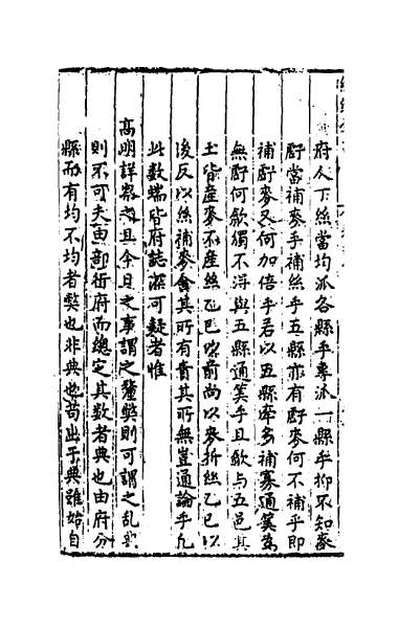 府人丁絲當均派各縣乎專派一縣乎抑不知虧
虧當補麥乎補絲乎五縣亦有虧麥何不補乎即
補虧麥又何加倍乎若以五縣牽多補寡通筭為
無虧何歙獨不得與五縣通筭乎且歙与五邑其
土皆産麥不産絲乙巳以前尚以麥折絲乙巳以
後反以絲補麥舍其所有責其所無豈通論乎凡
此數端皆府誌深可疑者惟
高明詳察之且今日之事謂之釐弊則可謂之亂典
則不可夫由部行府而總定其數者典也由府分
縣而有均不均者弊也非典也苟出于典雖始自